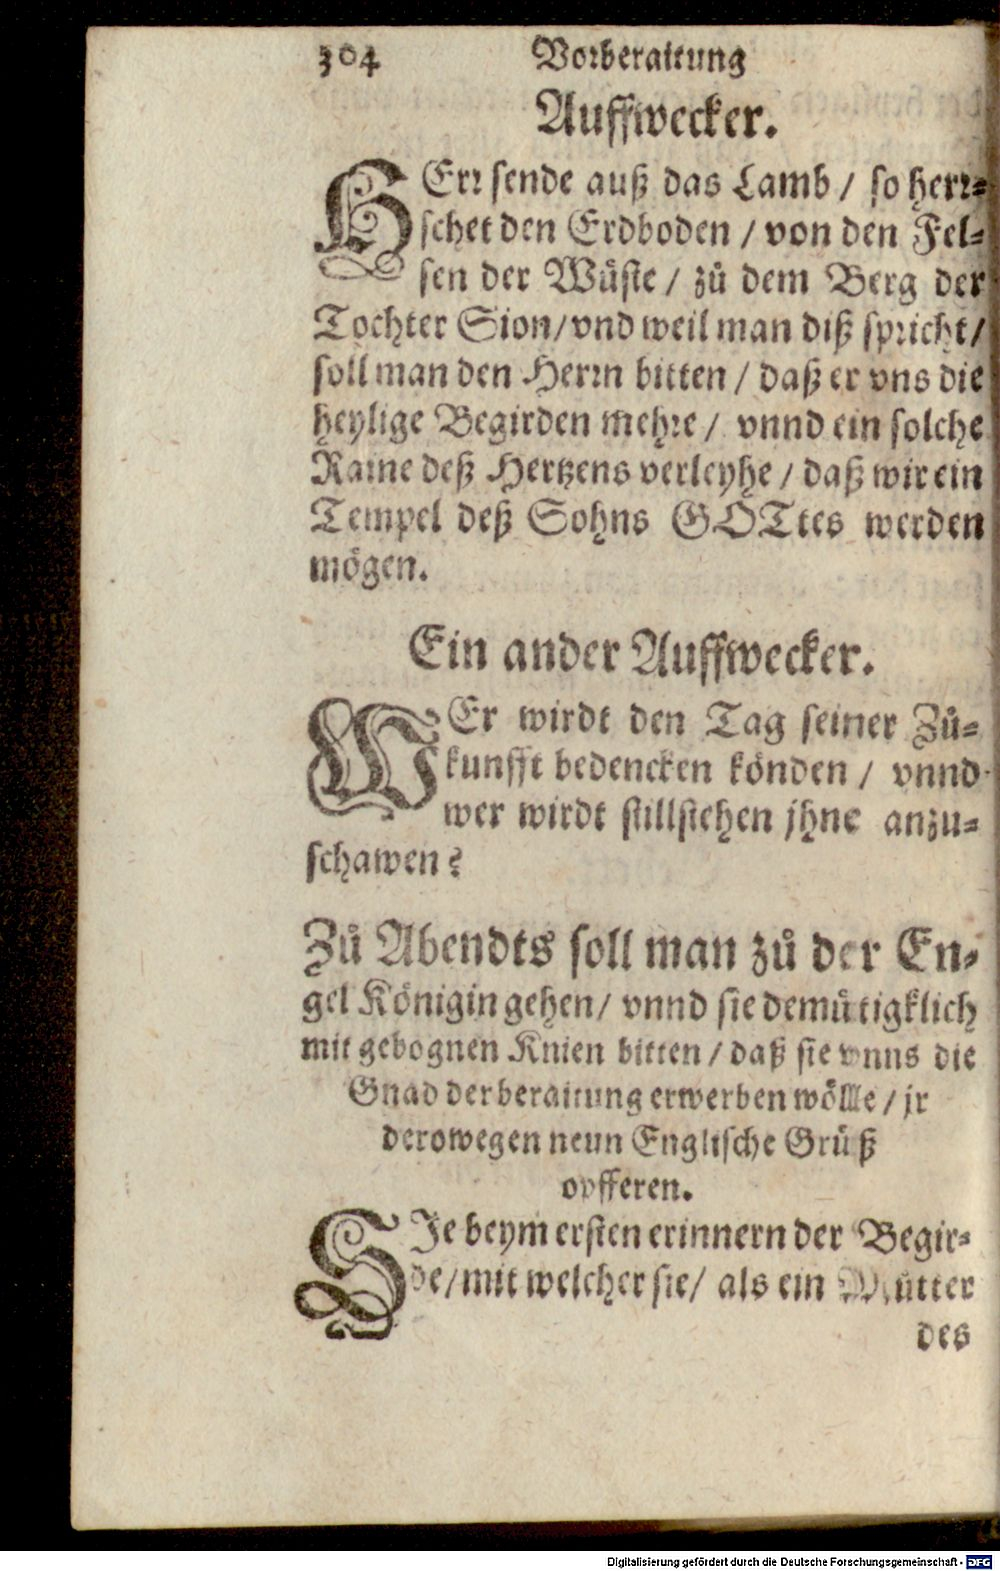 304 Vorberaitung
Auffwecker.
HErr sende auß das Lamb / so herr-
schet den Erdboden / von den Fel-
sen der Wüste / zů dem Berg der
Tochter Sion/ vnd weil man diß spricht/
soll man den Herrn bitten / daß er vns die
heylige Begirden mehre / vnnd ein solche
Raine deß Hertzens verleyhe / daß wir ein
Tempel deß Sohns GOTtes werden
mögen.
Ein ander Auffwecker.
WEr wirdt den Tag seiner Zů-
kunfft bedencken könden / vnnd
wer wirdt stillstehen jhne anzu-
schawen?
Zů Abendts soll man zů der En-
gel Königin gehen/ vnnd sie demůtigklich
mit gebognen Knien bitten / daß sie vnns die
Gnad der beraitung erwerben wölle / jr
derowegen neun Englische Grüß
opfferen.
SJe beym ersten erinnern der Begir-
de/ mit welcher sie/ als ein Můtter
des
Digitalisierung gefördert durch die Deutsche Forschungsgemeinschaft - DFG